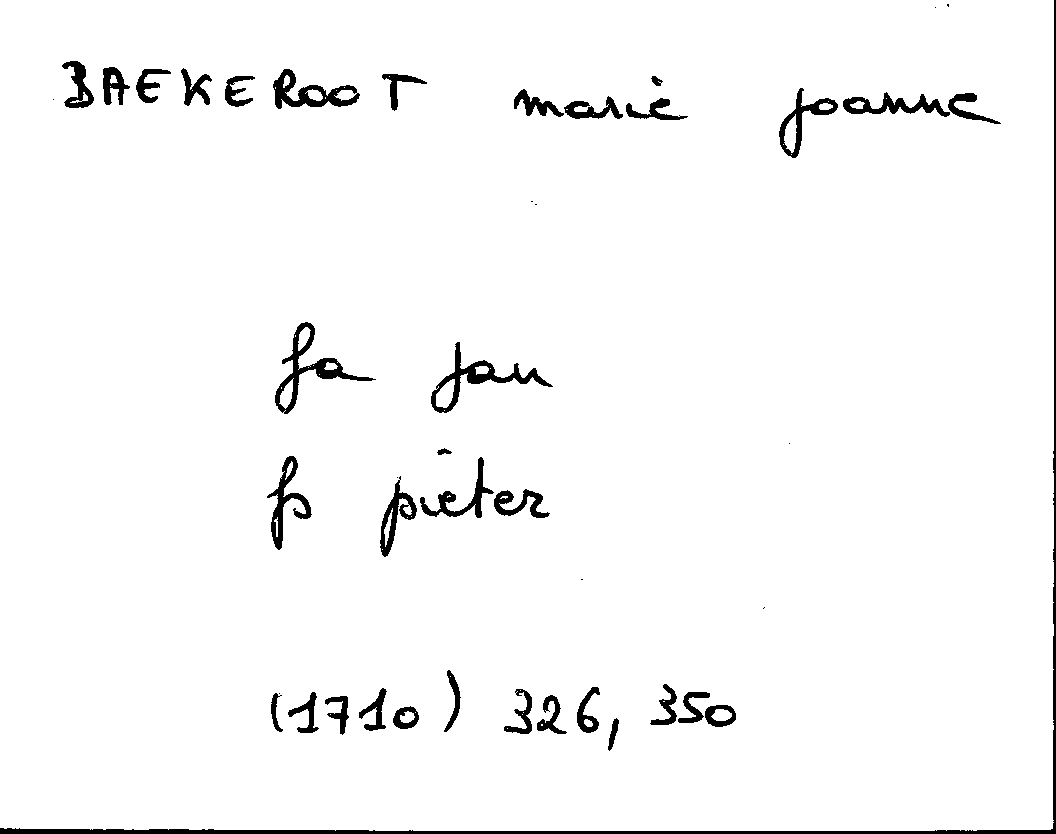 BAEKEROOT marie joanne
fa jan
fs pieter
(1710) 326, 350